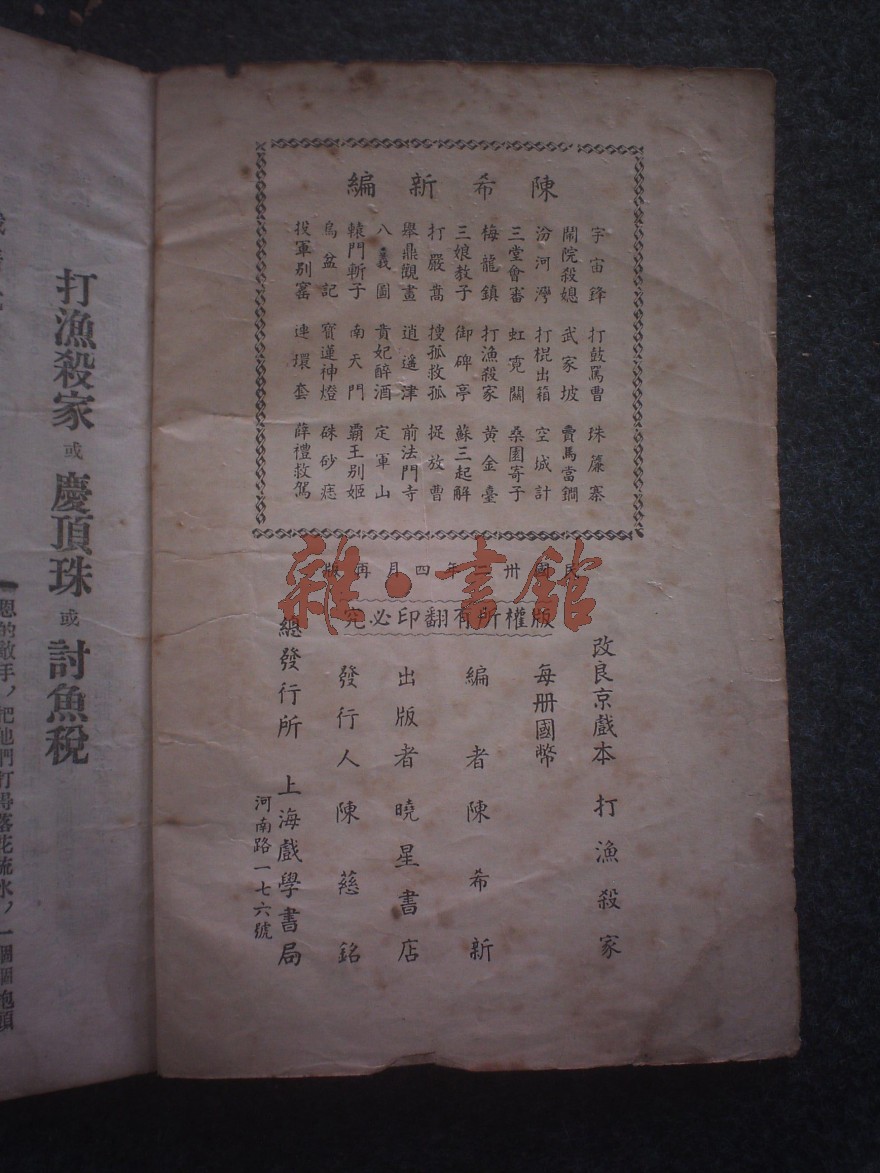 陳希新編
宇宙鋒 打鼓罵曹 珠簾寨
鬧院殺媳 武家坡 賣馬當鐧
汾河灣 打棍出箱 空城計
三堂會審 虹霓關 桑園寄子
梅龍鎮 打漁殺家 黃金臺
三娘教子 御碑亭 蘇三起解
打嚴嵩 搜孤救孤 捉放曹
舉鼎觀畫 逍遙津 前法門寺
八義圖 貴妃醉酒 定軍山
轅門斬子 南天門 霸王别姬
烏盆記 寶蓮神燈 硃砂痣
投軍别窰 連環套 薛禮救駕
民國卅二年四月再版
版權所有翻印必究
改良京戲本 打漁殺家
每册國幣
編者陳希新
出版者曉星書店
發行人陳慈銘
總發行所 上海戲學書局
河南路一七六號
雜·書館
打漁殺家 或 慶頂珠 或 討魚稅
的敵手，把他們打得落花流水，一個個抱頭